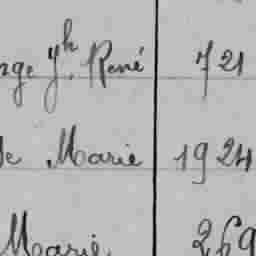 nge Jh. René 721
de Marie 1924
Marie 269